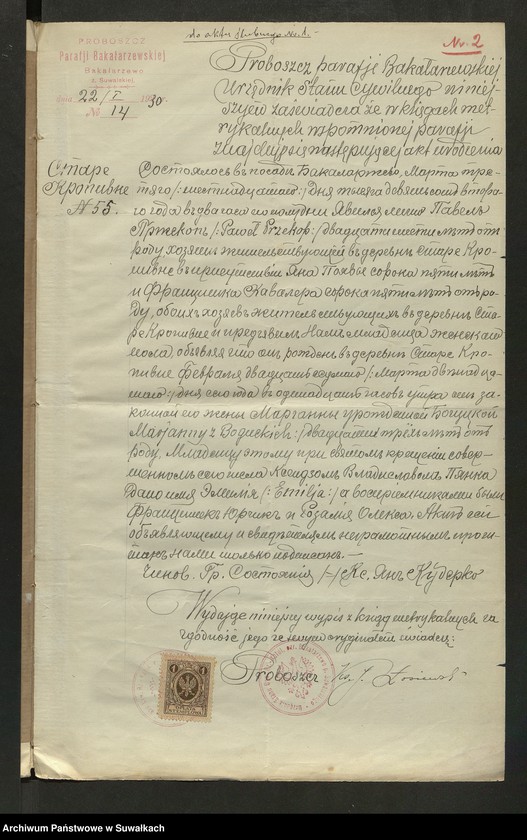 do aktu ślubnego No 1.
№ 2
PROBOSZCZ
Parafji Bakałarzewskiej
Bakałarzewo
z. Suwalskiej
dnia 22/I 1930
№ 14
Proboszcz parafji Bakałarzewskiej
Urzędnik Stanu Cywilnego niniej-
szym zaświadcza że w księgach met-
rykalnych wspomnionej parafji
znajduje się następujący akt urodzenia
Старе
Кропивне
№ 55.
Состоялось въ посадѣ Бакаларжево, Марта тре-
тяго /:шестнадцатаго:/ дня тысяча девятьсотъ второ-
го года въ два часа по полудни. Явился лично Павелъ
Пржекопъ /:Paweł Przekop:/ двадцати шести лѣтъ отъ
роду хозяинъ жительствующій въ деревнѣ Старе Кро-
пивне въ присутствіи Яна сорока пяти лѣтъ
и Францишка Кавалера сорока пяти лѣтъ отъ ро-
ду, обоихъ хозяевъ жительствующихъ въ деревнѣ Ста-
ре Кропивне и предъявилъ Намъ младенца женскаго
пола, объявляя что онъ рожденъ въ деревнѣ Старе Кро-
пивне Февраля двадцать седьмаго /:Марта двѣнадца-
таго:/ дня сего года въ одинадцать часовъ утра отъ за-
конной его жены Марганны урожденной
Marjanny z :/ двадцати трёхъ лѣтъ отъ
роду. Младенцу этому при святомъ крещеніи совер-
шенномъ сего числа Ксендзомъ Владиславомъ Пянка
дано имя Эмилія /:Emilja:/ а воспріемниками были
Францишекъ Юрчикъ и Розалія Олекса. Актъ сей
объявляющему и свидѣтелямъ неграмотнымъ прочи-
танъ Нами только подписанъ. —
Чинов. Гр. Состоянія /-/ Кс. Янъ Кудерко
Wydaje niniejszy wypis z ksiąg metrykalnych za
zgodność jego ze swym oryginałem świadczę:
Proboszcz Ks. J.
1
Archiwum Państwowe w Suwałkach